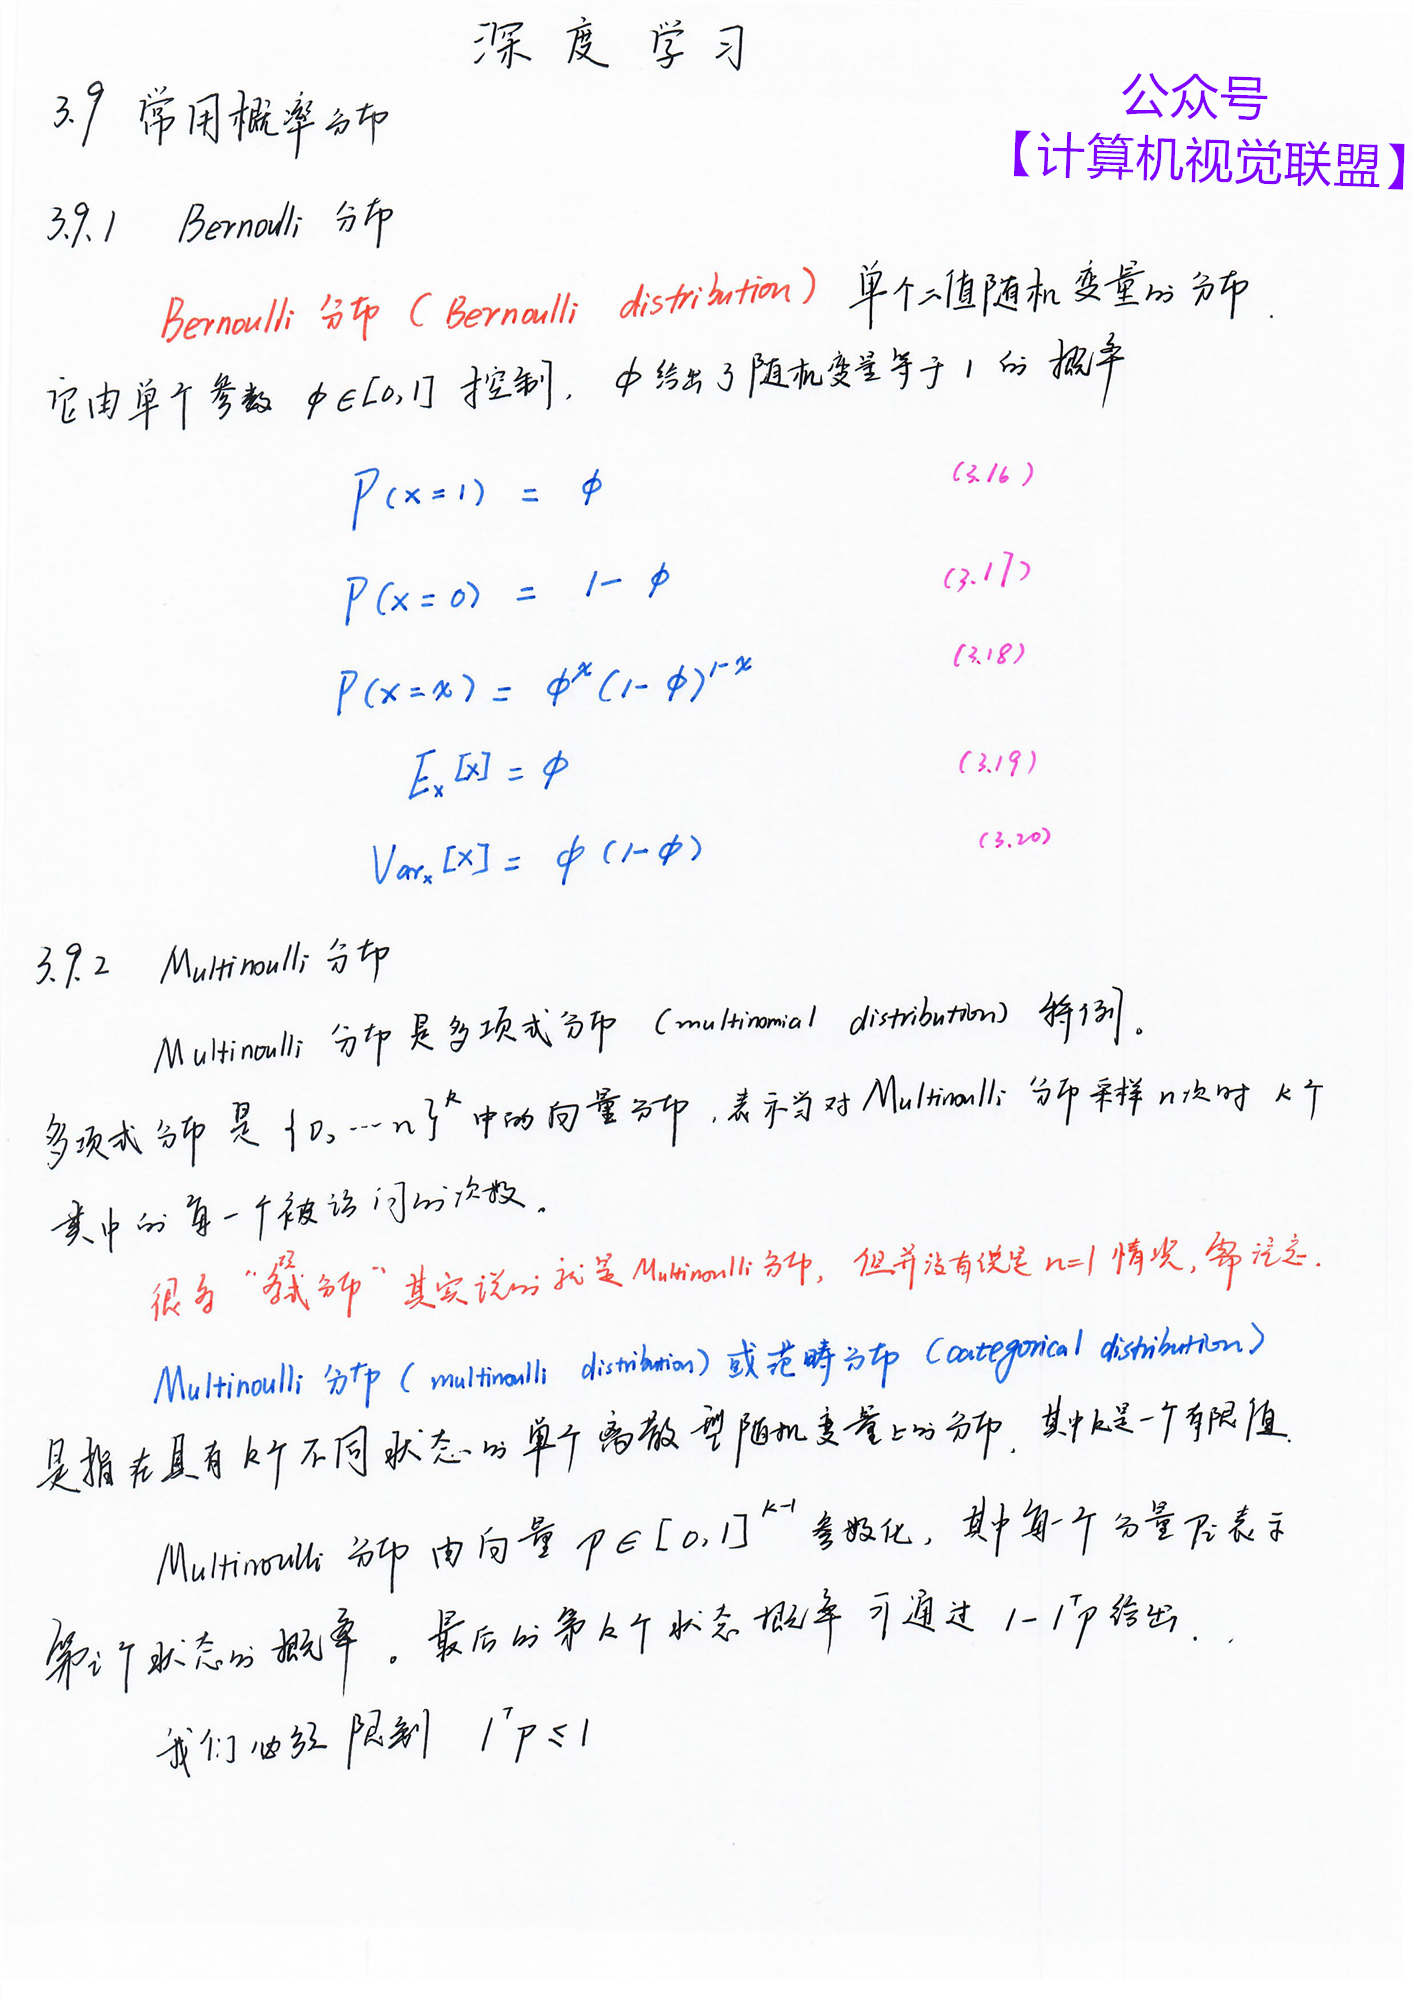 深度学习
公众号
【计算机视觉联盟】
3.9 常用概率分布
3.9.1 Bernoulli 分布
Bernoulli 分布 ( Bernoulli distribution) 单个二值随机变量的分布.
它由单个参数 φ∈[0,1] 控制, φ给出了随机变量等于 1 的 概率
P(x=1) = φ (3.16)
P(x=0) = 1-φ (3.17)
P(x=x) = φ^x (1-φ)^{1-x} (3.18)
E_x[x] = φ (3.19)
Var_x[x] = φ(1-φ) (3.20)
3.9.2 Multinoulli 分布
Multinoulli 分布是多项式分布 (multinomial distribution) 特例。
多项式分布是 {0,…n}^k 中的向量分布,表示当对Multinoulli 分布采样n次时 k个
类中的每一个被访问的次数。
很多 "多项式分布" 其实说的就是Multinoulli分布, 但并没有说是n=1情况, 需注意.
Multinoulli 分布 ( multinoulli distribution) 或范畴分布 (categorical distribution)
是指在具有k个不同状态的单个离散型随机变量上的分布, 其中k是一个有限值.
Multinoulli 分布 由向量 p∈[0,1]^{k-1} 参数化, 其中每一个分量 p_i 表示
第i个状态的概率。最后的第k个状态概率可通过 1-1^T p 给出.
我们必须限制 1^T p ≤ 1